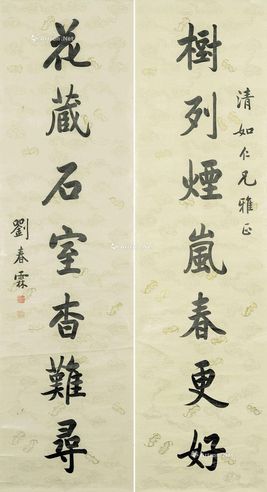 清如仁兄雅正
樹列煙嵐春更好
花藏石室杳難尋
劉春霖